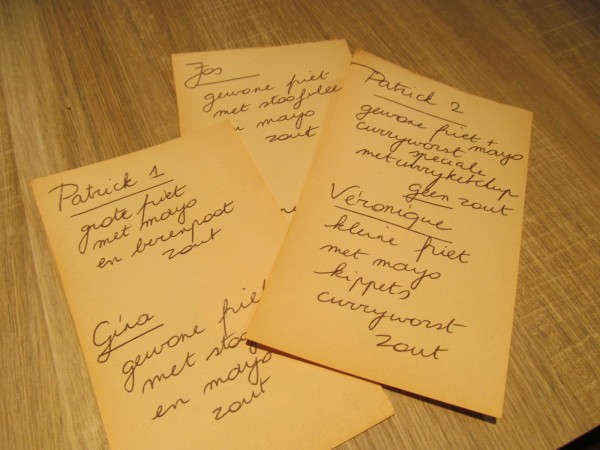 Jos
gewone friet
met stoofvlee
en mayo
zout
Patrick 1
grote friet
met mayo
en berenpoot
zout
Gina
gewone friet
met stoo
en mayo
zout
Patrick 2
gewone friet +
curryworst mayo
speciale
met curryketchup
geen zout
Véronique
kleine friet
met mayo
kippets
curryworst
zout